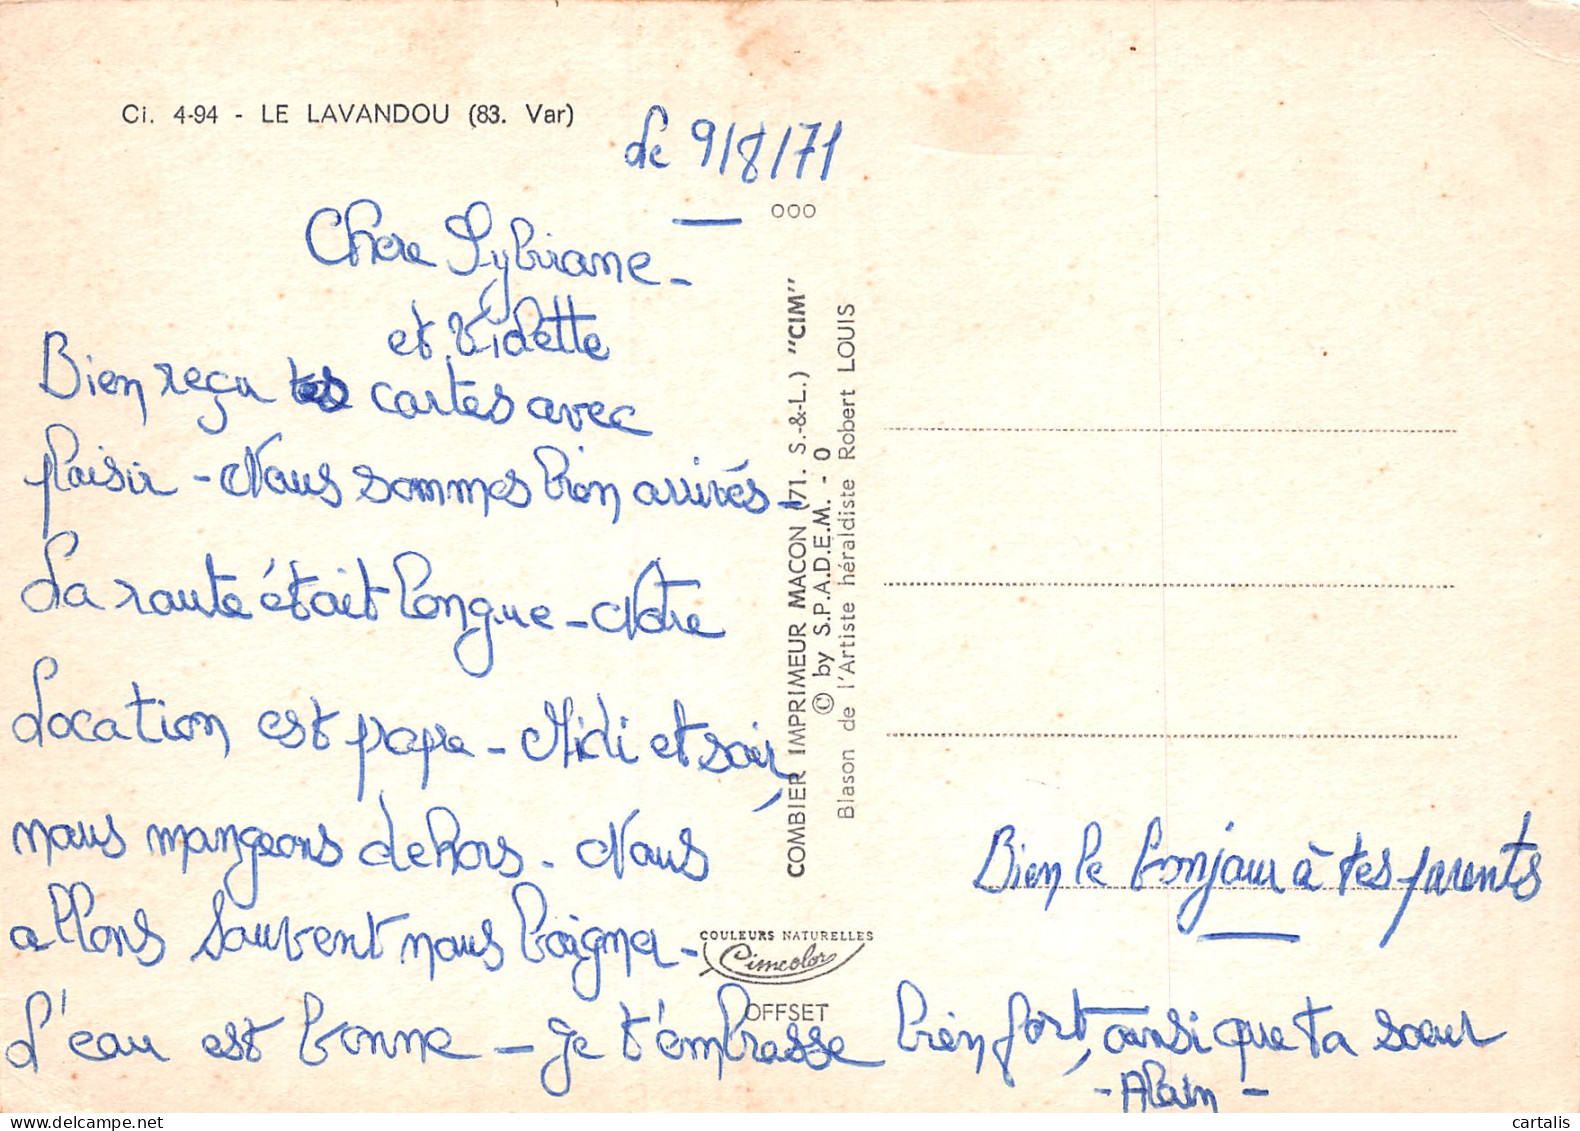 Ci. 4-94 - LE LAVANDOU (83. Var)
Le 9/8/71
Chère Sybirane -
et Vidette
Bien reçu tes cartes avec
plaisir - Nous sommes bien arrivés -
La route était longue - Notre
Location est propre - Midi et soir,
nous mangeons dehors - Nous
allons souvent nous baigner -
L'eau est bonne - Je t'embrasse bien fort, ainsi que ta soeur
- Alain -
Bien le bonjour à tes parents
000
COMBIER IMPRIMEUR MACON (71. S.-&-L.) "CIM"
© by S.P.A.D.E.M. - O
Blason de l'Artiste héraldiste Robert LOUIS
COULEURS NATURELLES
Cimcolor
OFFSET
cartalis